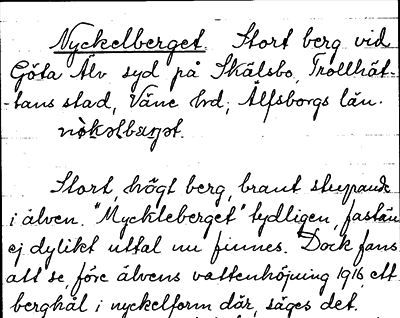 Nyckelberget. Stort berg vid
Göta Älv syd på Skälsbo, Trollhät-
-tans stad, Väne hd; Älfsborgs län.
Stort, högt berg, brant stupande
i älven. "Myckleberget" tydligen, fastän
ej dylikt uttal nu finnes. Dock fans
att se, före älvens vattenhöjning 1916, ett
berghål i nyckelform där, säges det.